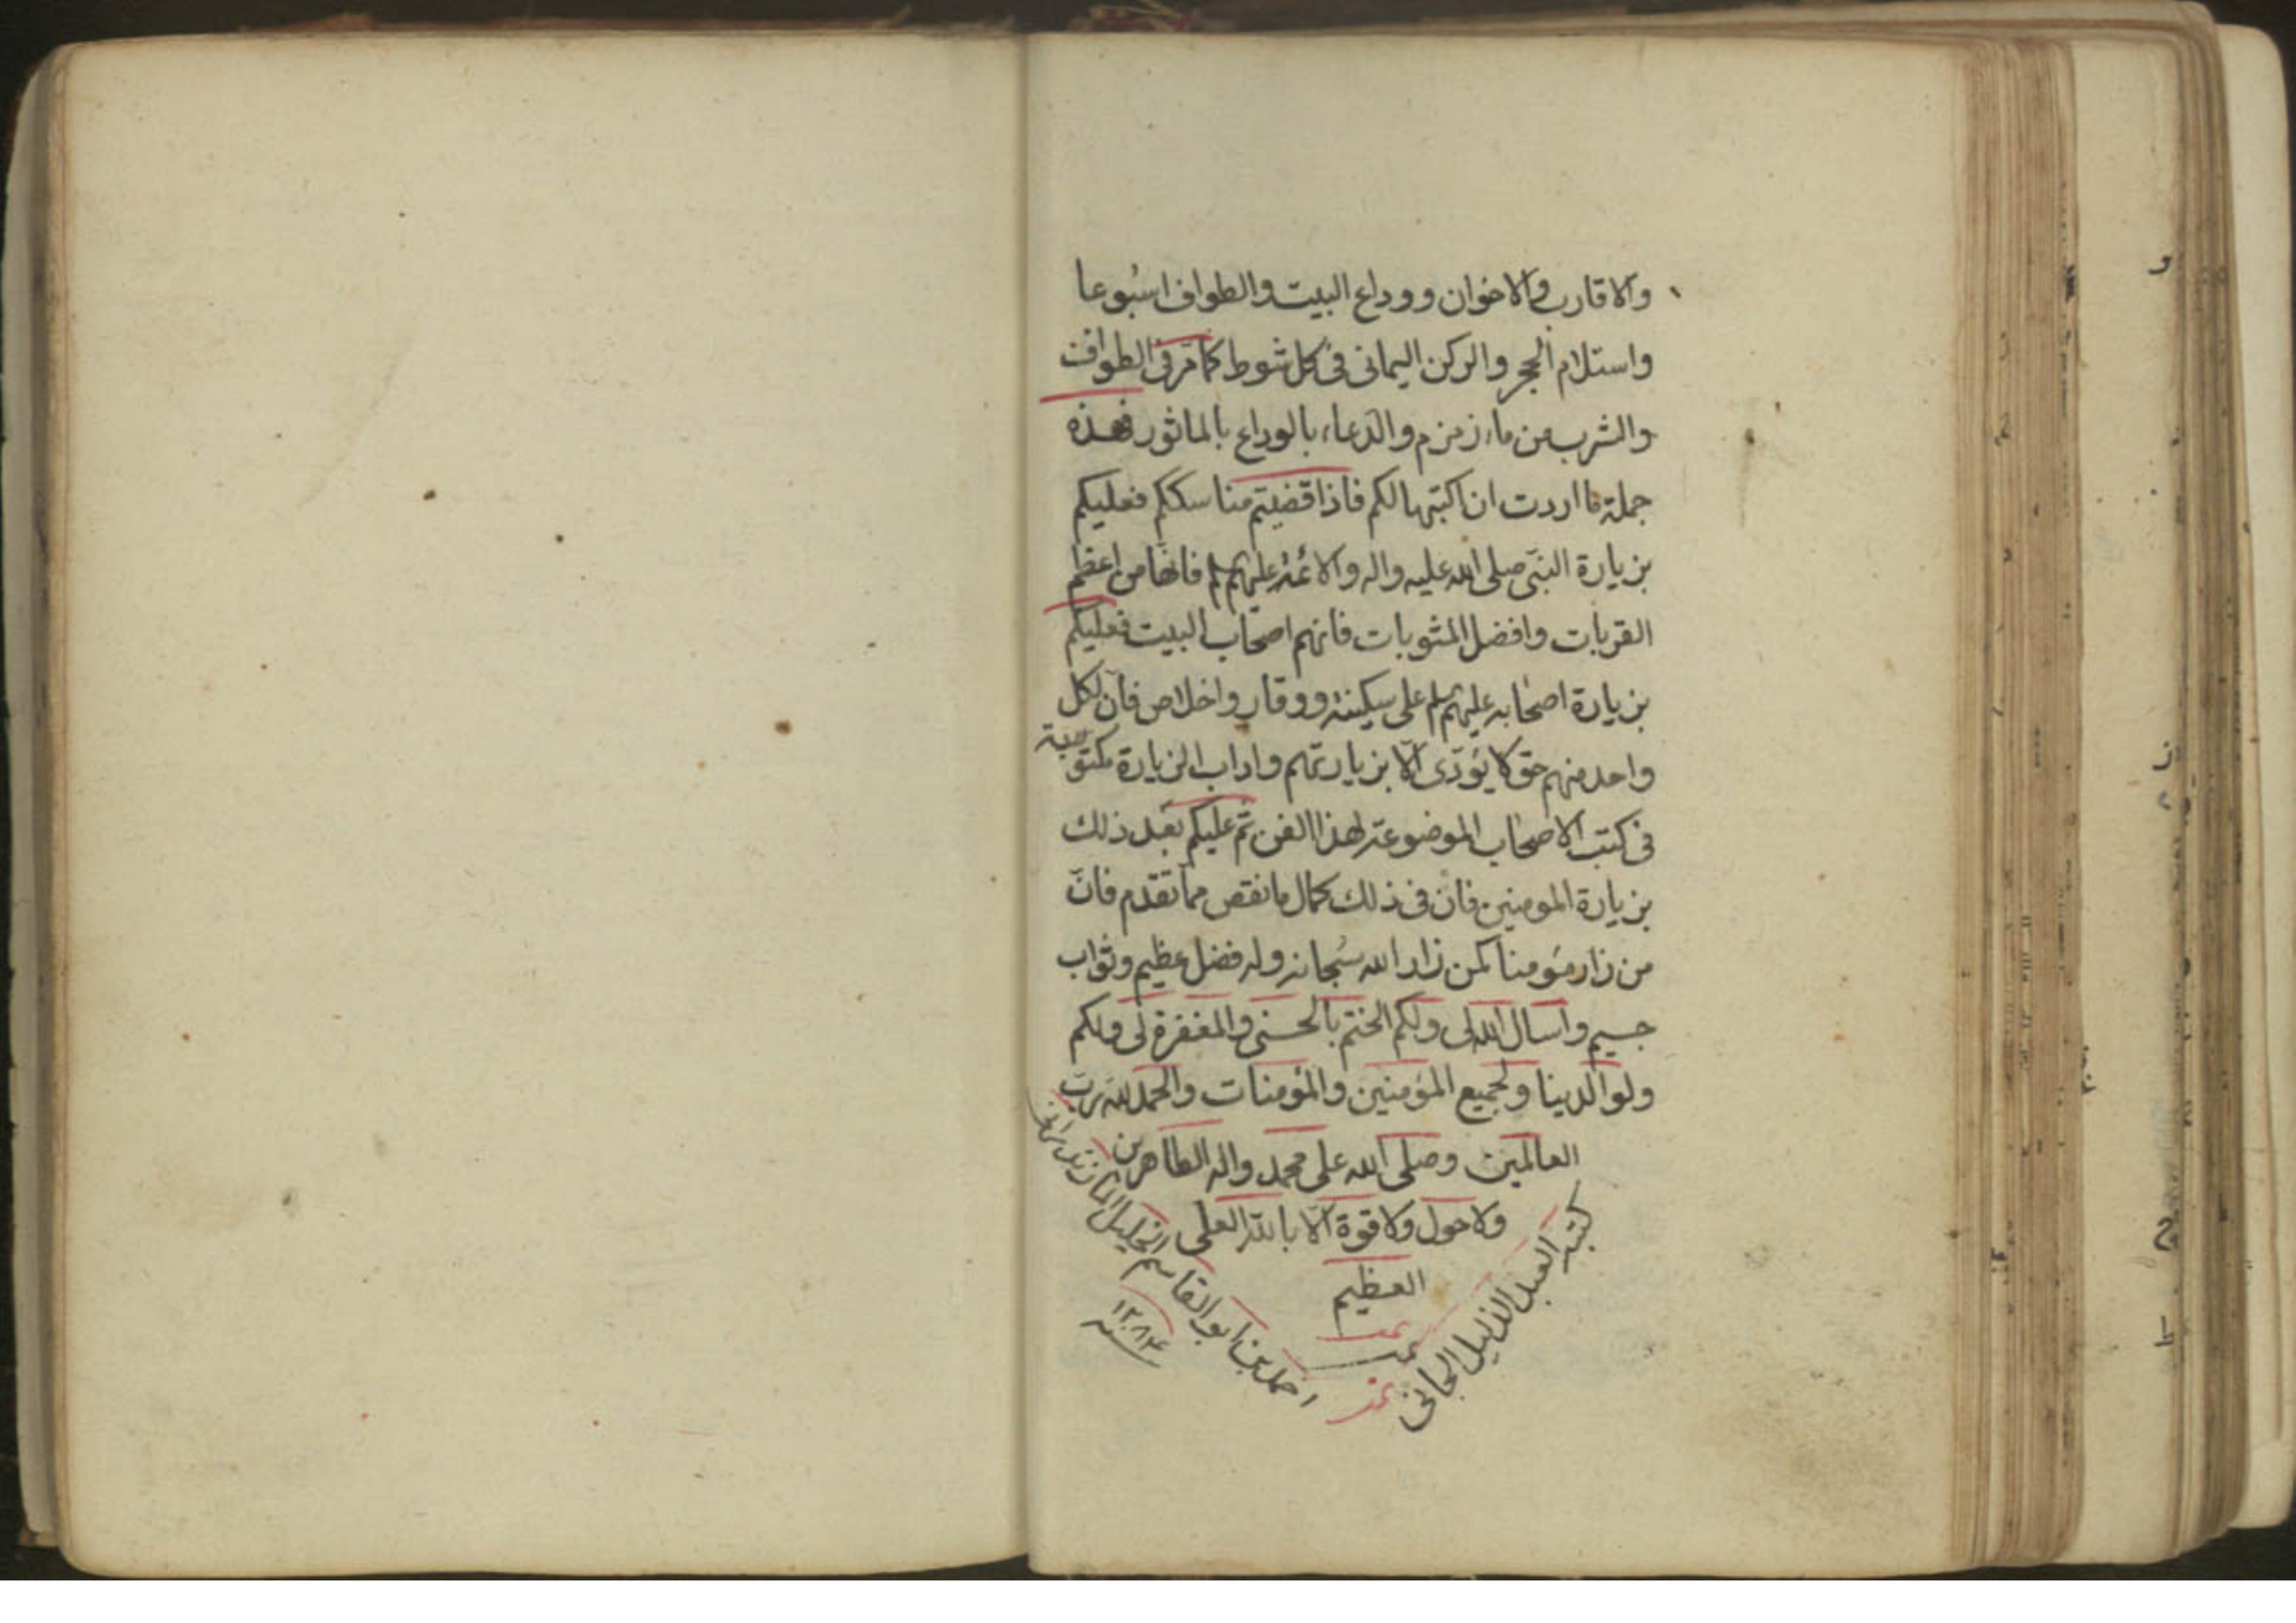 والاقارب والاخوان ووداع البيت والطواف اسبوعا
واستلام الحجر والركن اليمانى فى كل شوط كما مر فى الطواف
والشرب من ماء زمزم والدعاء بالوداع بالماثور فهذه
جملة ما اردت ان اكتبها لكم فاذا قضيتم مناسككم فعليكم
بزيارة النبى صلى الله عليه واله والائمة عليهم فانها من اعظم
القربات وافضل المثوبات فانهم اصحاب البيت فعليكم
بزيارة اصحابه عليهم على سكينة ووقار واخلاص فان لكل
واحد منهم حق لا يؤدى الا بزيارتهم واداب الزيارة مكتوبة
فى كتب الاصحاب الموضوعة لهذا الفن ثم عليكم بعد ذلك
بزيارة المومنين فان فى ذلك كمال ما نقص مما تقدم فان
من زار مؤمنا كمن زار الله سبحانه وله فضل عظيم وثواب
جسيم واسال الله لى ولكم الختم بالحسنى والمغفرة لى ولكم
ولوالدينا ولجميع المؤمنين والمؤمنات والحمد لله رب
العالمين وصلى الله على محمد واله الطاهرين
ولا حول ولا قوة الا بالله العلى
العظيم
تمت
كتبه العبد الذليل الجانى
احمد بن ابو القاسم الخليل المازندرانى
سنه ١٢٨٤